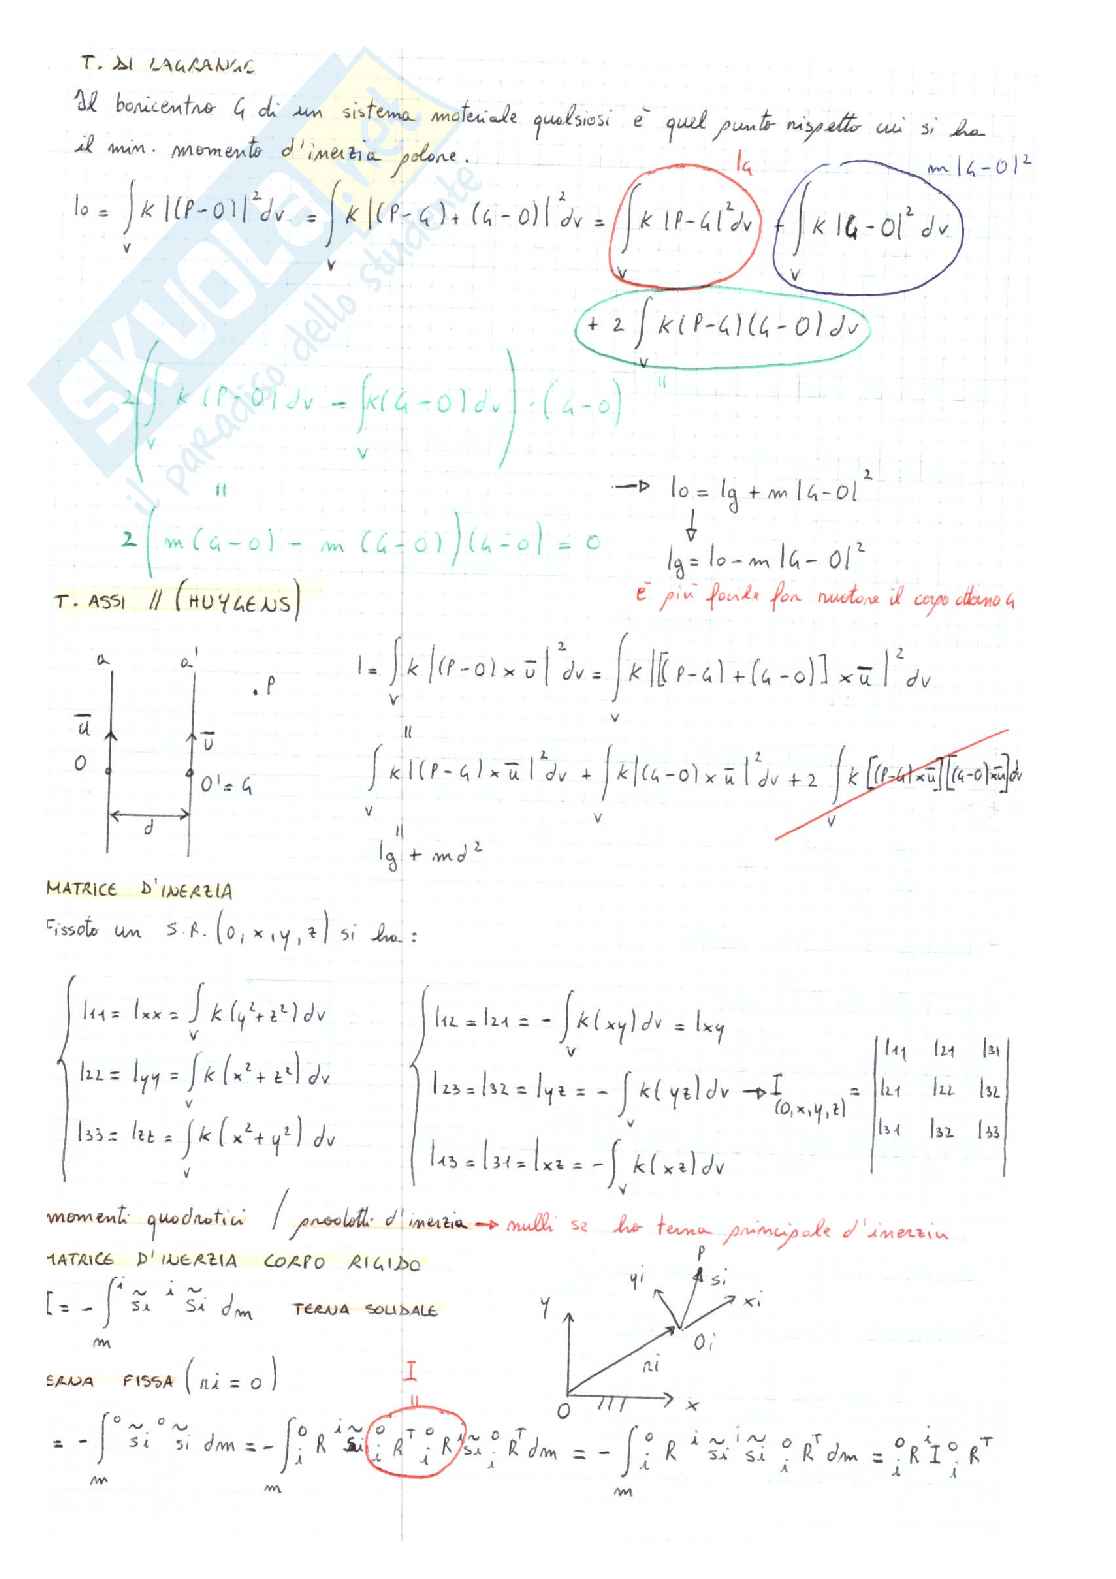 T. DI LAGRANGE
Il baricentro G di un sistema materiale qualsiasi è quel punto rispetto cui si ha
il min. momento d'inerzia polare.
IG
m |G-O|²
Io = ∫v K |(P-O)|² dv = ∫v K |(P-G) + (G-O)|² dv = ∫v K |P-G|² dv + ∫v K |G-O|² dv
+ 2 ∫v K (P-G)(G-O) dv
=
2 ( ∫v K (P-O) dv - ∫v K (G-O) dv ) · (G-O)
=
2 ( m (G-O) - m (G-O) ) (G-O) = 0
→ Io = Ig + m |G-O|²
↓
Ig = Io - m |G-O|²
è più facile far ruotare il corpo attorno G
T. ASSI // (HUYGENS)
a a'
. P
u̅ u̅
O O' = G
d
I = ∫v K |(P-O) × u̅|² dv = ∫v K |[(P-G) + (G-O)] × u̅|² dv
=
∫v K |(P-G) × u̅|² dv + ∫v K |(G-O) × u̅|² dv + 2 ∫v K [(P-G) × u̅][(G-O) × u̅] dv
=
Ig + md²
MATRICE D'INERZIA
Fissato un S.R. (O, x, y, z) si ha :
I11 = Ixx = ∫v K (y² + z²) dv
I22 = Iyy = ∫v K (x² + z²) dv
I33 = Izz = ∫v K (x² + y²) dv
I12 = I21 = - ∫v K (xy) dv = Ixy
I23 = I32 = Iyz = - ∫v K (yz) dv → I(O,x,y,z) =
I13 = I31 = Ixz = - ∫v K (xz) dv
I11 I21 I31
I21 I22 I32
I31 I32 I33
momenti quadratici / prodotti d'inerzia → nulli se ho terna principale d'inerzia
MATRICE D'INERZIA CORPO RIGIDO
I = - ∫m ⁱs̃i ⁱs̃i dm TERNA SOLIDALE
P
yi si xi
Y Oi
ri
O x
ERNA FISSA (ri = 0)
I
=
= - ∫m ⁰s̃i ⁰s̃i dm = - ∫m ⁰iR ⁱs̃i ⁰iRᵀ ⁰iR ⁱs̃i ⁰iRᵀ dm = - ∫m ⁰iR ⁱs̃i ⁱs̃i ⁰iRᵀ dm = ⁰iR ⁱI ⁰iRᵀ
SKUOLA.net
il paradiso dello studente